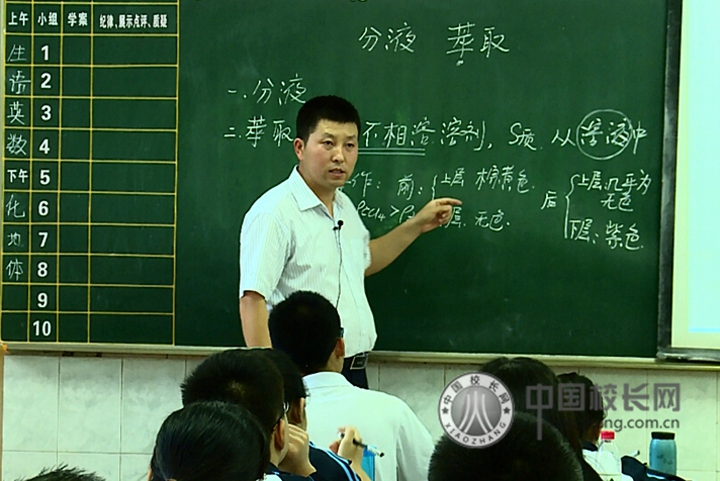 上午 小组 学案 纪律、展示点评、质疑
生 1
语 2
英 3
数 4
下午 5
化 6
地 7
体 8
9
10
分液 萃取
一、分液
二、萃取 不相溶溶剂, S质. 从溶液中
作: 前: 上层 棕黄色. 后 上层: 几乎为无色
层: 无色. 下层: 紫色.
中国校长网
XIAOZHANG
中国校长网
zhang.com.cn